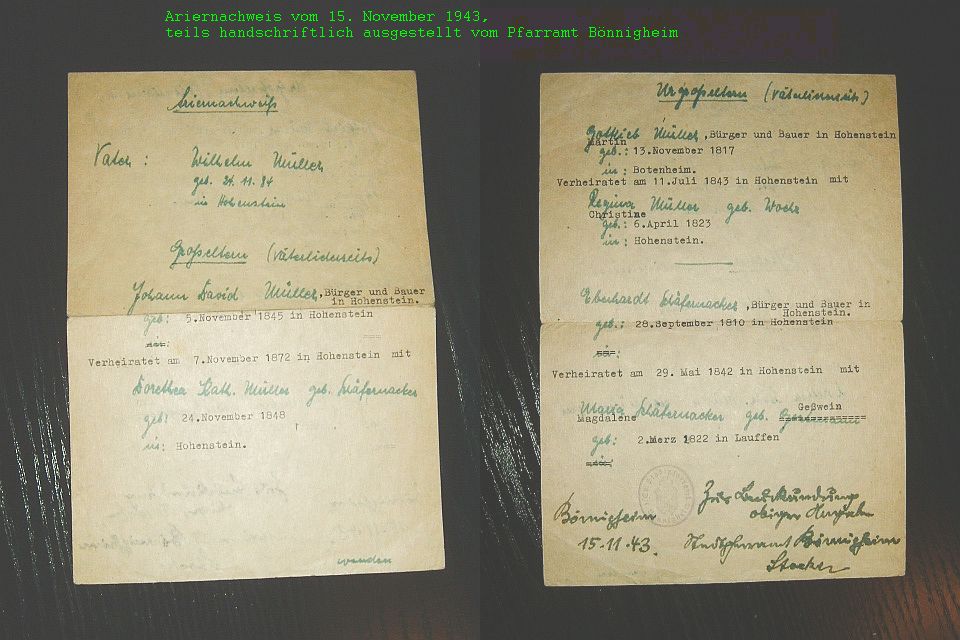 Ariernachweis vom 15. November 1943,
teils handschriftlich ausgestellt vom Pfarramt Bönnigheim
Ariernachweiß
Vater : Wilhelm Müller
geb. 24. 11. 84
in Hohenstein
Großeltern (väterlicherseits)
Johann David Müller, Bürger und Bauer
in Hohenstein.
geb: 5.November 1845 in Hohenstein
in:
Verheiratet am 7.November 1872 in Hohenstein mit
Dorothea Kath. Müller geb. Schäfernacker
geb: 24.November 1848
in: Hohenstein.
wenden
Urgroßeltern (väterlicherseits)
Gottlieb Müller, Bürger und Bauer in Hohenstein
Martin
geb.: 13.November 1817
in: Botenheim.
Verheiratet am 11.Juli 1843 in Hohenstein mit
Regina Müller geb. Woehr
Christine
geb.: 6.April 1823
in: Hohenstein.
Eberhardt Schäfernacker, Bürger und Bauer in
Hohenstein.
geb.: 28.September 1810 in Hohenstein
in:
Verheiratet am 29. Mai 1842 in Hohenstein mit
Geßwein
Maria Schäfernacker geb.
Magdalene
geb: 2.Merz 1822 in Lauffen
in:
Zur Beurkundung
obiger Angaben
Bönnigheim
15.11.43. Stadtpfarramt Bönnigheim